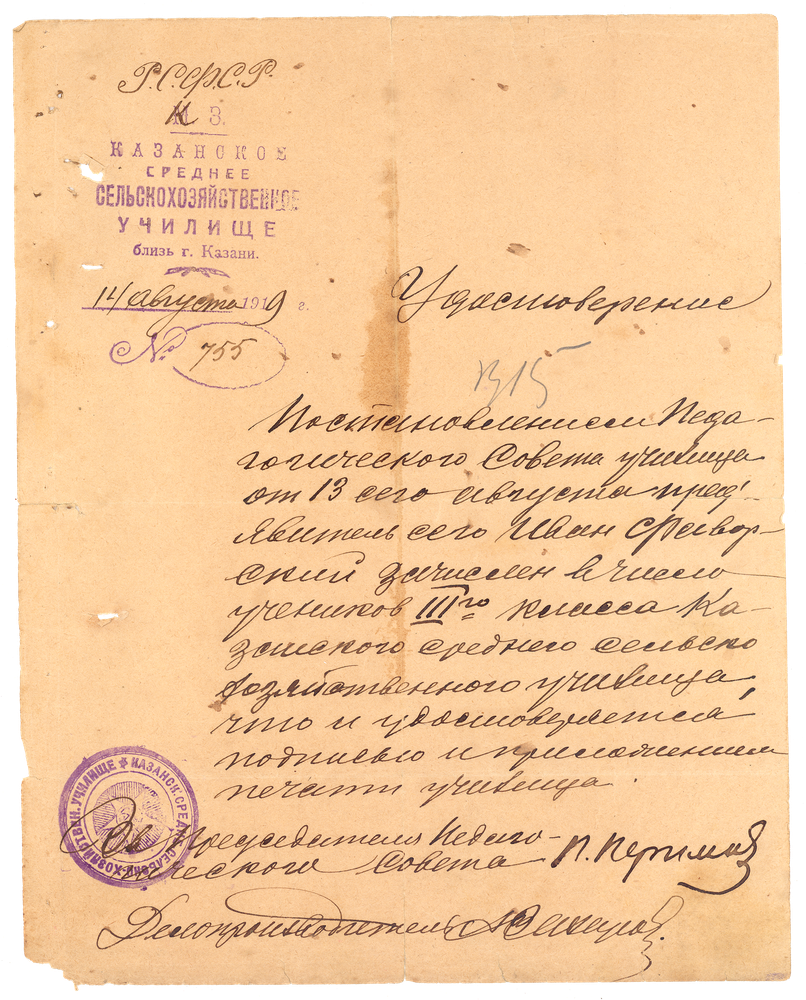 Р.С.Ф.С.Р.
Н. К. З.
КАЗАНСКОЕ
СРЕДНЕЕ
СЕЛЬСКОХОЗЯЙСТВЕННОЕ
УЧИЛИЩЕ
близь г. Казани.
14 августа 1919 г.
№ 755
Удостоверение
1315
Постановлением Педа-
гогического Совета училища
от 13 сего августа пред'-
явитель сего Иван Фавор-
ский зачислен в число
учеников III го класса Ка-
занского среднего сельско
хозяйственного училища,
что и удостоверяется
подписью и приложением
печати училища.
КАЗАНСК. СРЕДН. СЕЛЬСКО-ХОЗЯЙСТВЕН. УЧИЛИЩЕ
За Председателя Педаго-
гического Совета П.
Делопроизводитель